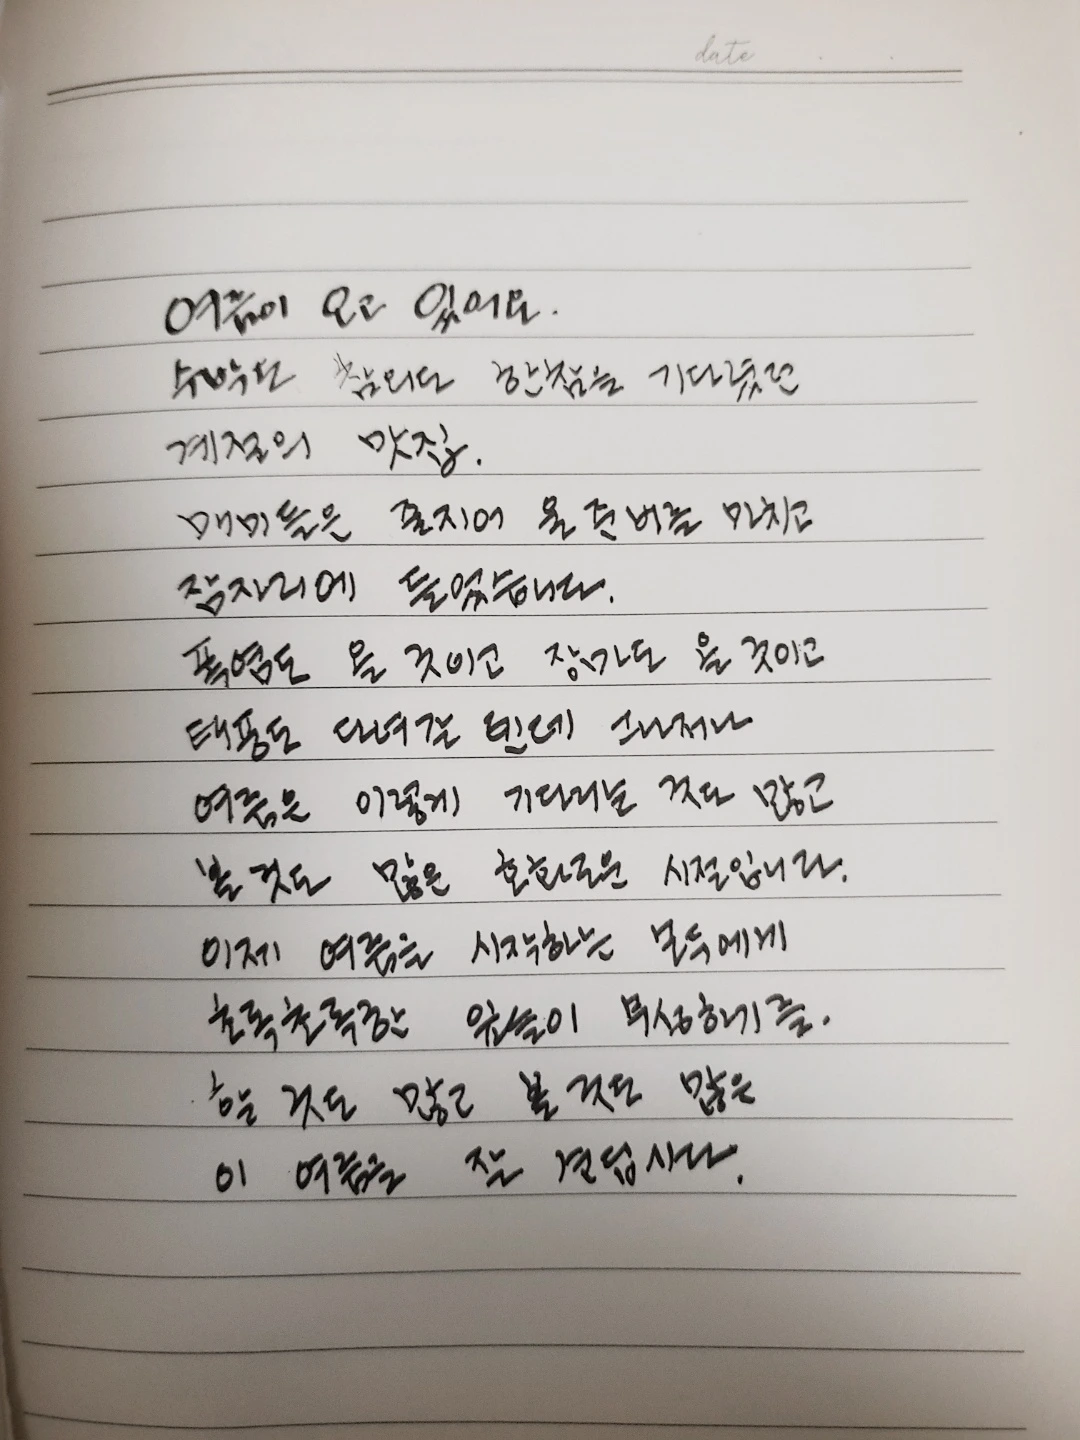 date
여름이 오고 있어요.
수박도 참외도 한참을 기다렸던
계절의 맛집.
매미들은 줄지어 울 준비를 마치고
잠자리에 들었습니다.
폭염도 올 것이고 장마도 올 것이고
태풍도 다녀갈 텐데 그나저나
여름은 이렇게 기다리는 것도 많고
볼 것도 많은 호화로운 시절입니다.
이제 여름을 시작하는 모두에게
초록초록한 일들이 무성하기를.
할 것도 많고 볼 것도 많은
이 여름을 잘 견딥시다.